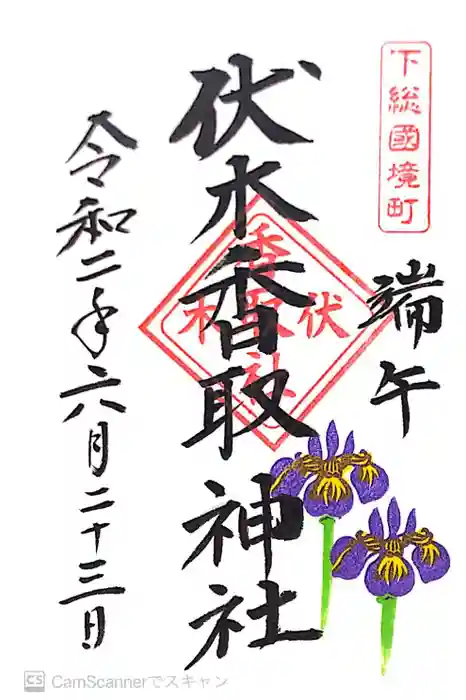 下総國境町
端午
伏木香取神社
伏木
香取
社
令和二年六月二十三日
CS CamScannerでスキャン